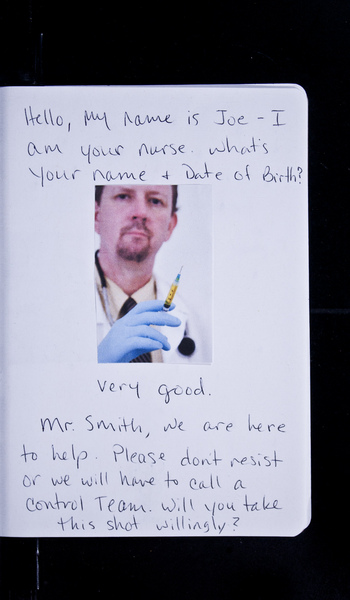 Hello, My name is Joe - I
am your nurse. what's
your name + Date of Birth?
very good.
Mr. Smith, we are here
to help. Please dont resist
or we will have to call a
control Team. Will you take
this shot willingly?